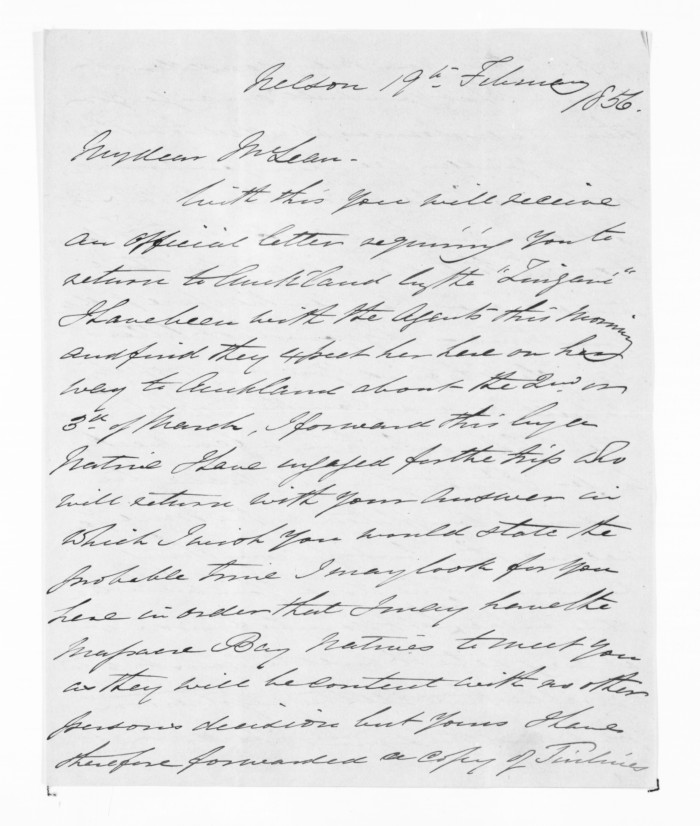 Nelson 19th February
1856.
My dear McLean -
With this you will receive
an official letter requiring you to
return to Auckland by the "Zingari"
I have been with the Agents this Morning
and find they expect her here on her
way to Auckland about the 2nd or
3rd of March, I forward this by a
Native I have engaged for the trip who
will return with your Answer in
which I wish you would state the
probable time I may look for you
here in order that I may have the
Massacre Bay Natives to meet you
as they will be content with no other
persons decision but yours I have
therefore forwarded a copy of Tinlines